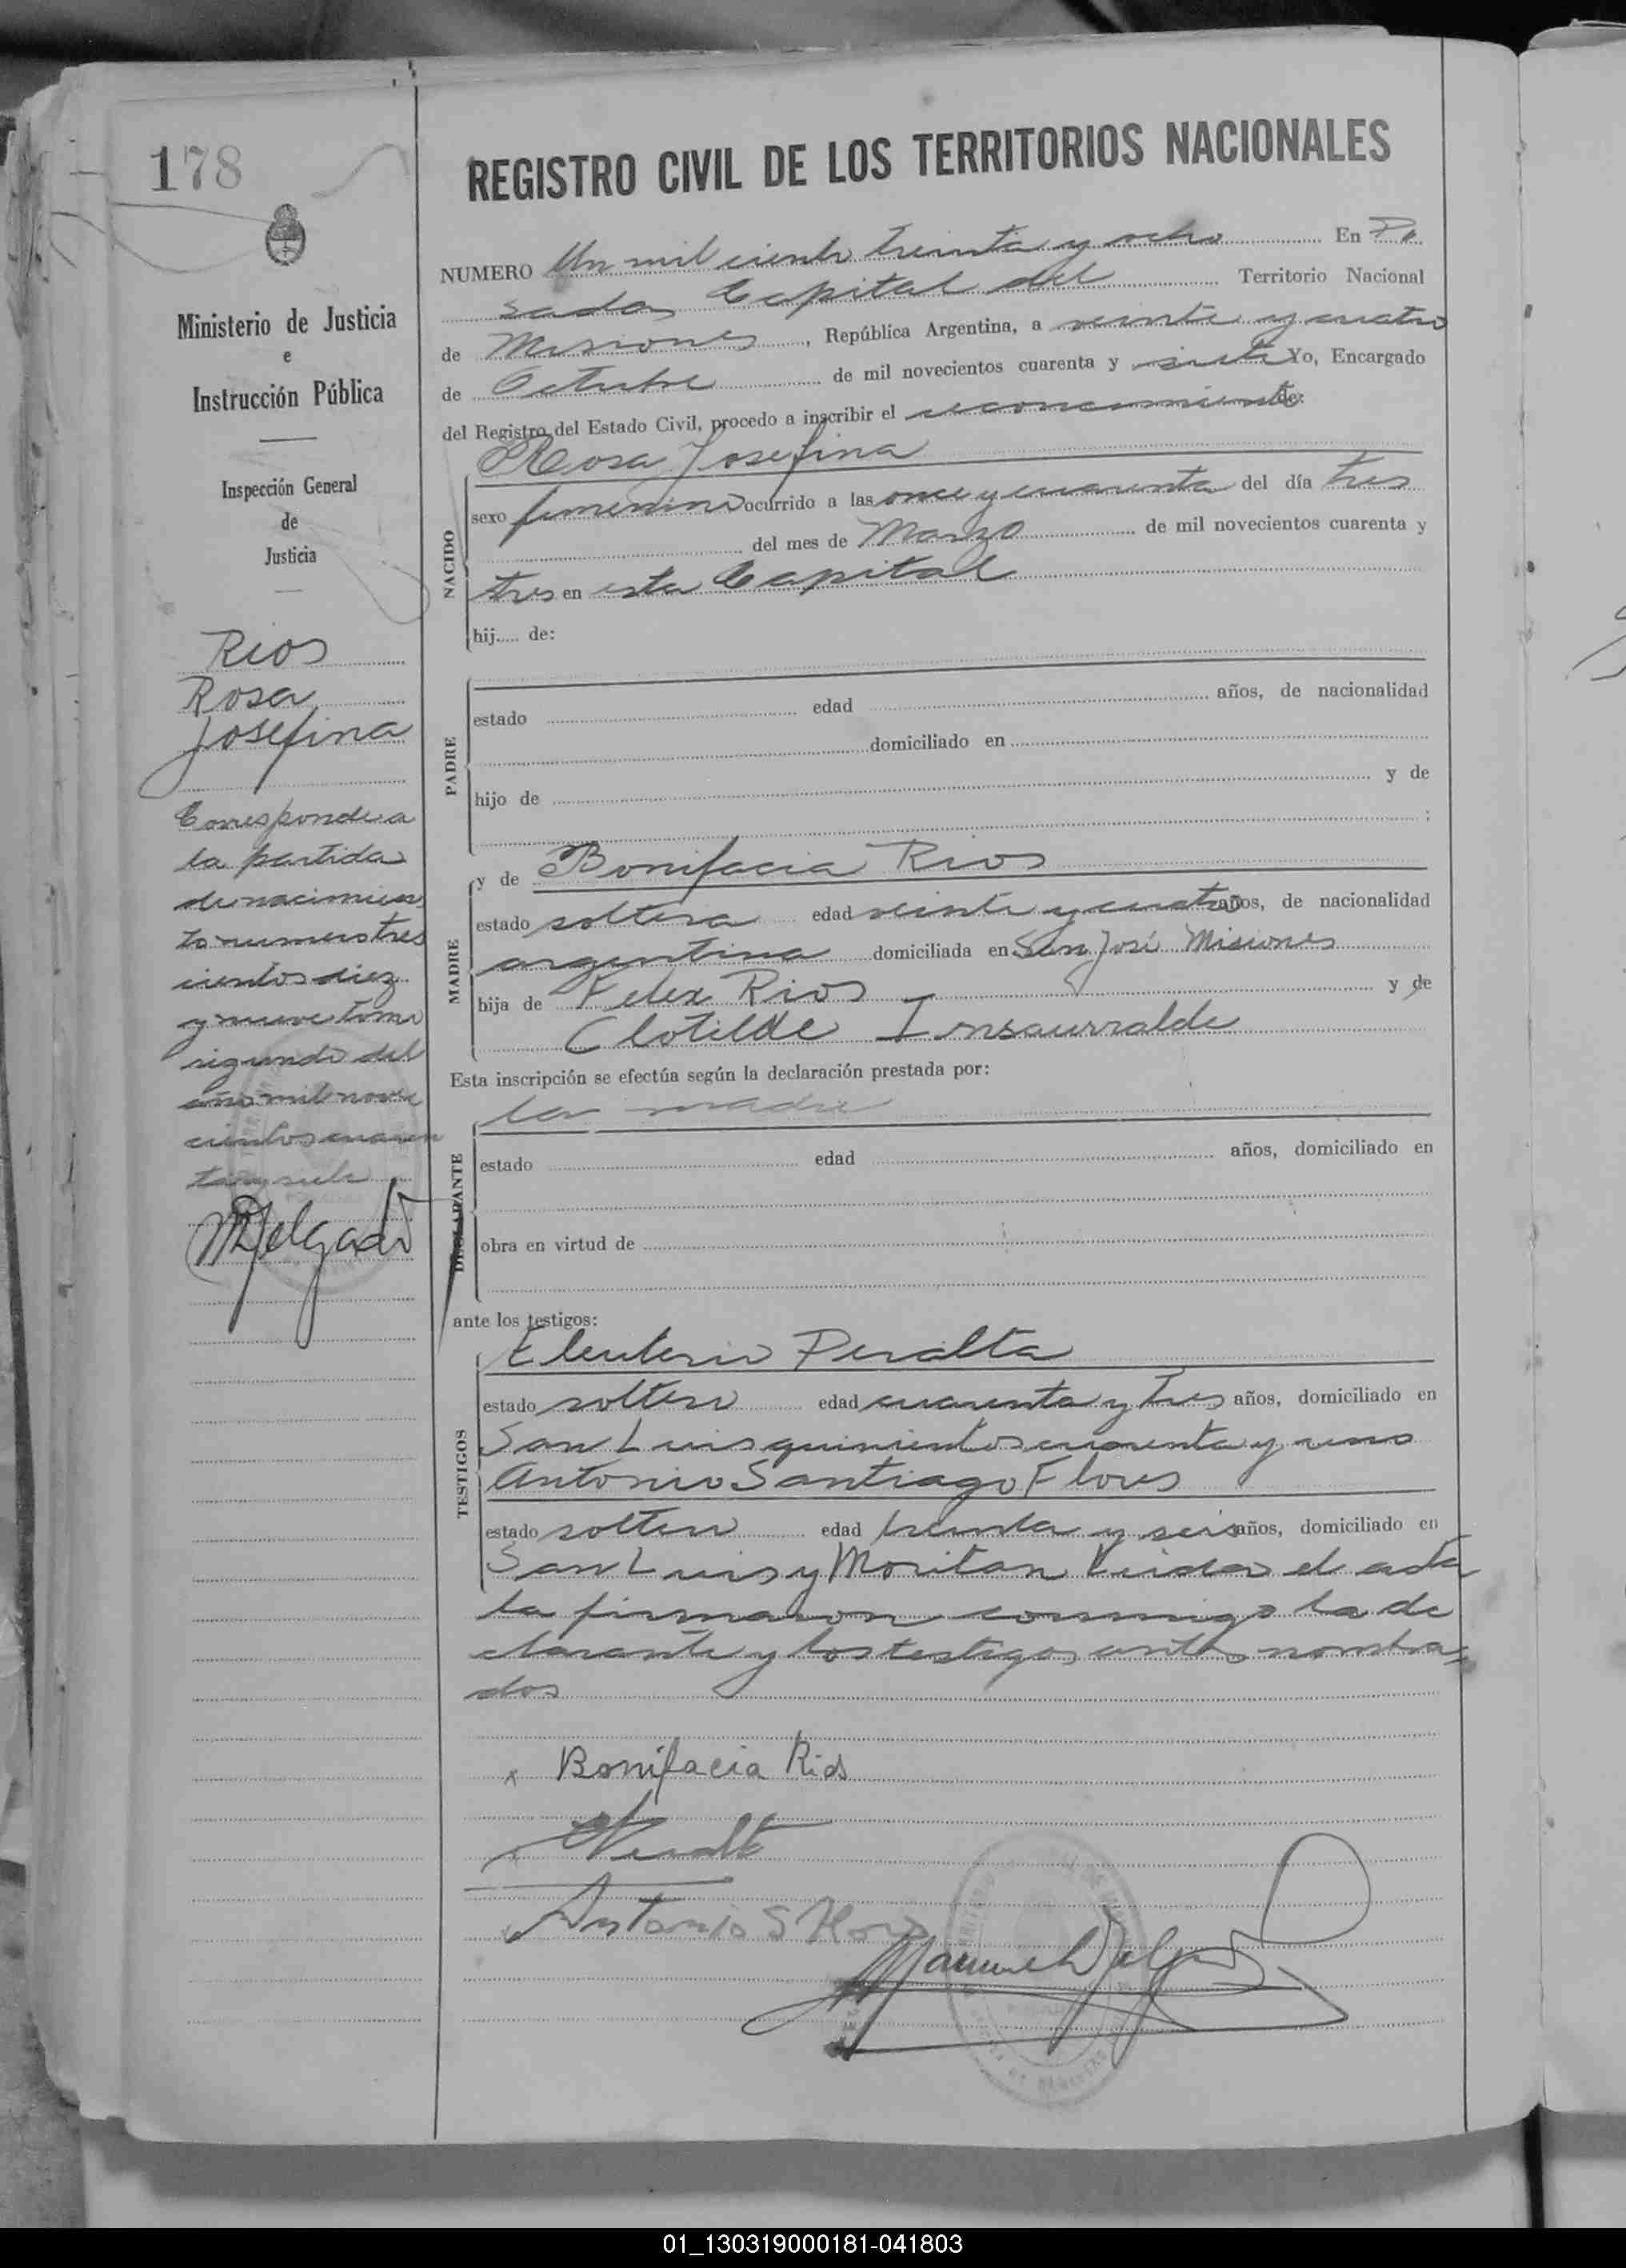 178
REGISTRO CIVIL DE LOS TERRITORIOS NACIONALES
Ministerio de Justicia
e
Instrucción Pública
Inspección General
de
Justicia
Rios
Rosa
Josefina
Corresponde a
la partida
de nacimien
to numero tres
cientos diez
y nueve tomo
segundo del
año mil nove
cientos cuaren
ta y siete
MDelgado
NUMERO Un mil ciento treinta y ocho En Po
sadas Capital del Territorio Nacional
de Misiones, República Argentina, a veinte y cuatro
de Octubre de mil novecientos cuarenta y siete Yo, Encargado
del Registro del Estado Civil, procedo a inscribir el reconocimiento de:
Rosa Josefina
NACIDO
sexo femenino ocurrido a las once y cuarenta del día tres
del mes de Marzo de mil novecientos cuarenta y
tres en esta Capital
hij..... de:
PADRE
estado edad años, de nacionalidad
domiciliado en
hijo de y de
;
MADRE
y de Bonifacia Rios
estado soltera edad veinte y cuatro años, de nacionalidad
argentina domiciliada en San José Misiones
hija de Felix Rios y de
Clotilde Insaurralde
Esta inscripción se efectúa según la declaración prestada por:
la madre
DECLARANTE
estado edad años, domiciliado en
obra en virtud de
ante los testigos:
TESTIGOS
Eleuterio Peralta
estado soltero edad cuarenta y tres años, domiciliado en
San Luis quinientos cuarenta y uno
Antonio Santiago Flores
estado soltero edad treinta y seis años, domiciliado en
San Luis y Moritan Leida el acta
la firmaron conmigo la de
clarante y los testigos antes nombra
dos
Bonifacia Rios
EPeralta
Antonio S Flores
Manuel Delgado
01_130319000181-041803